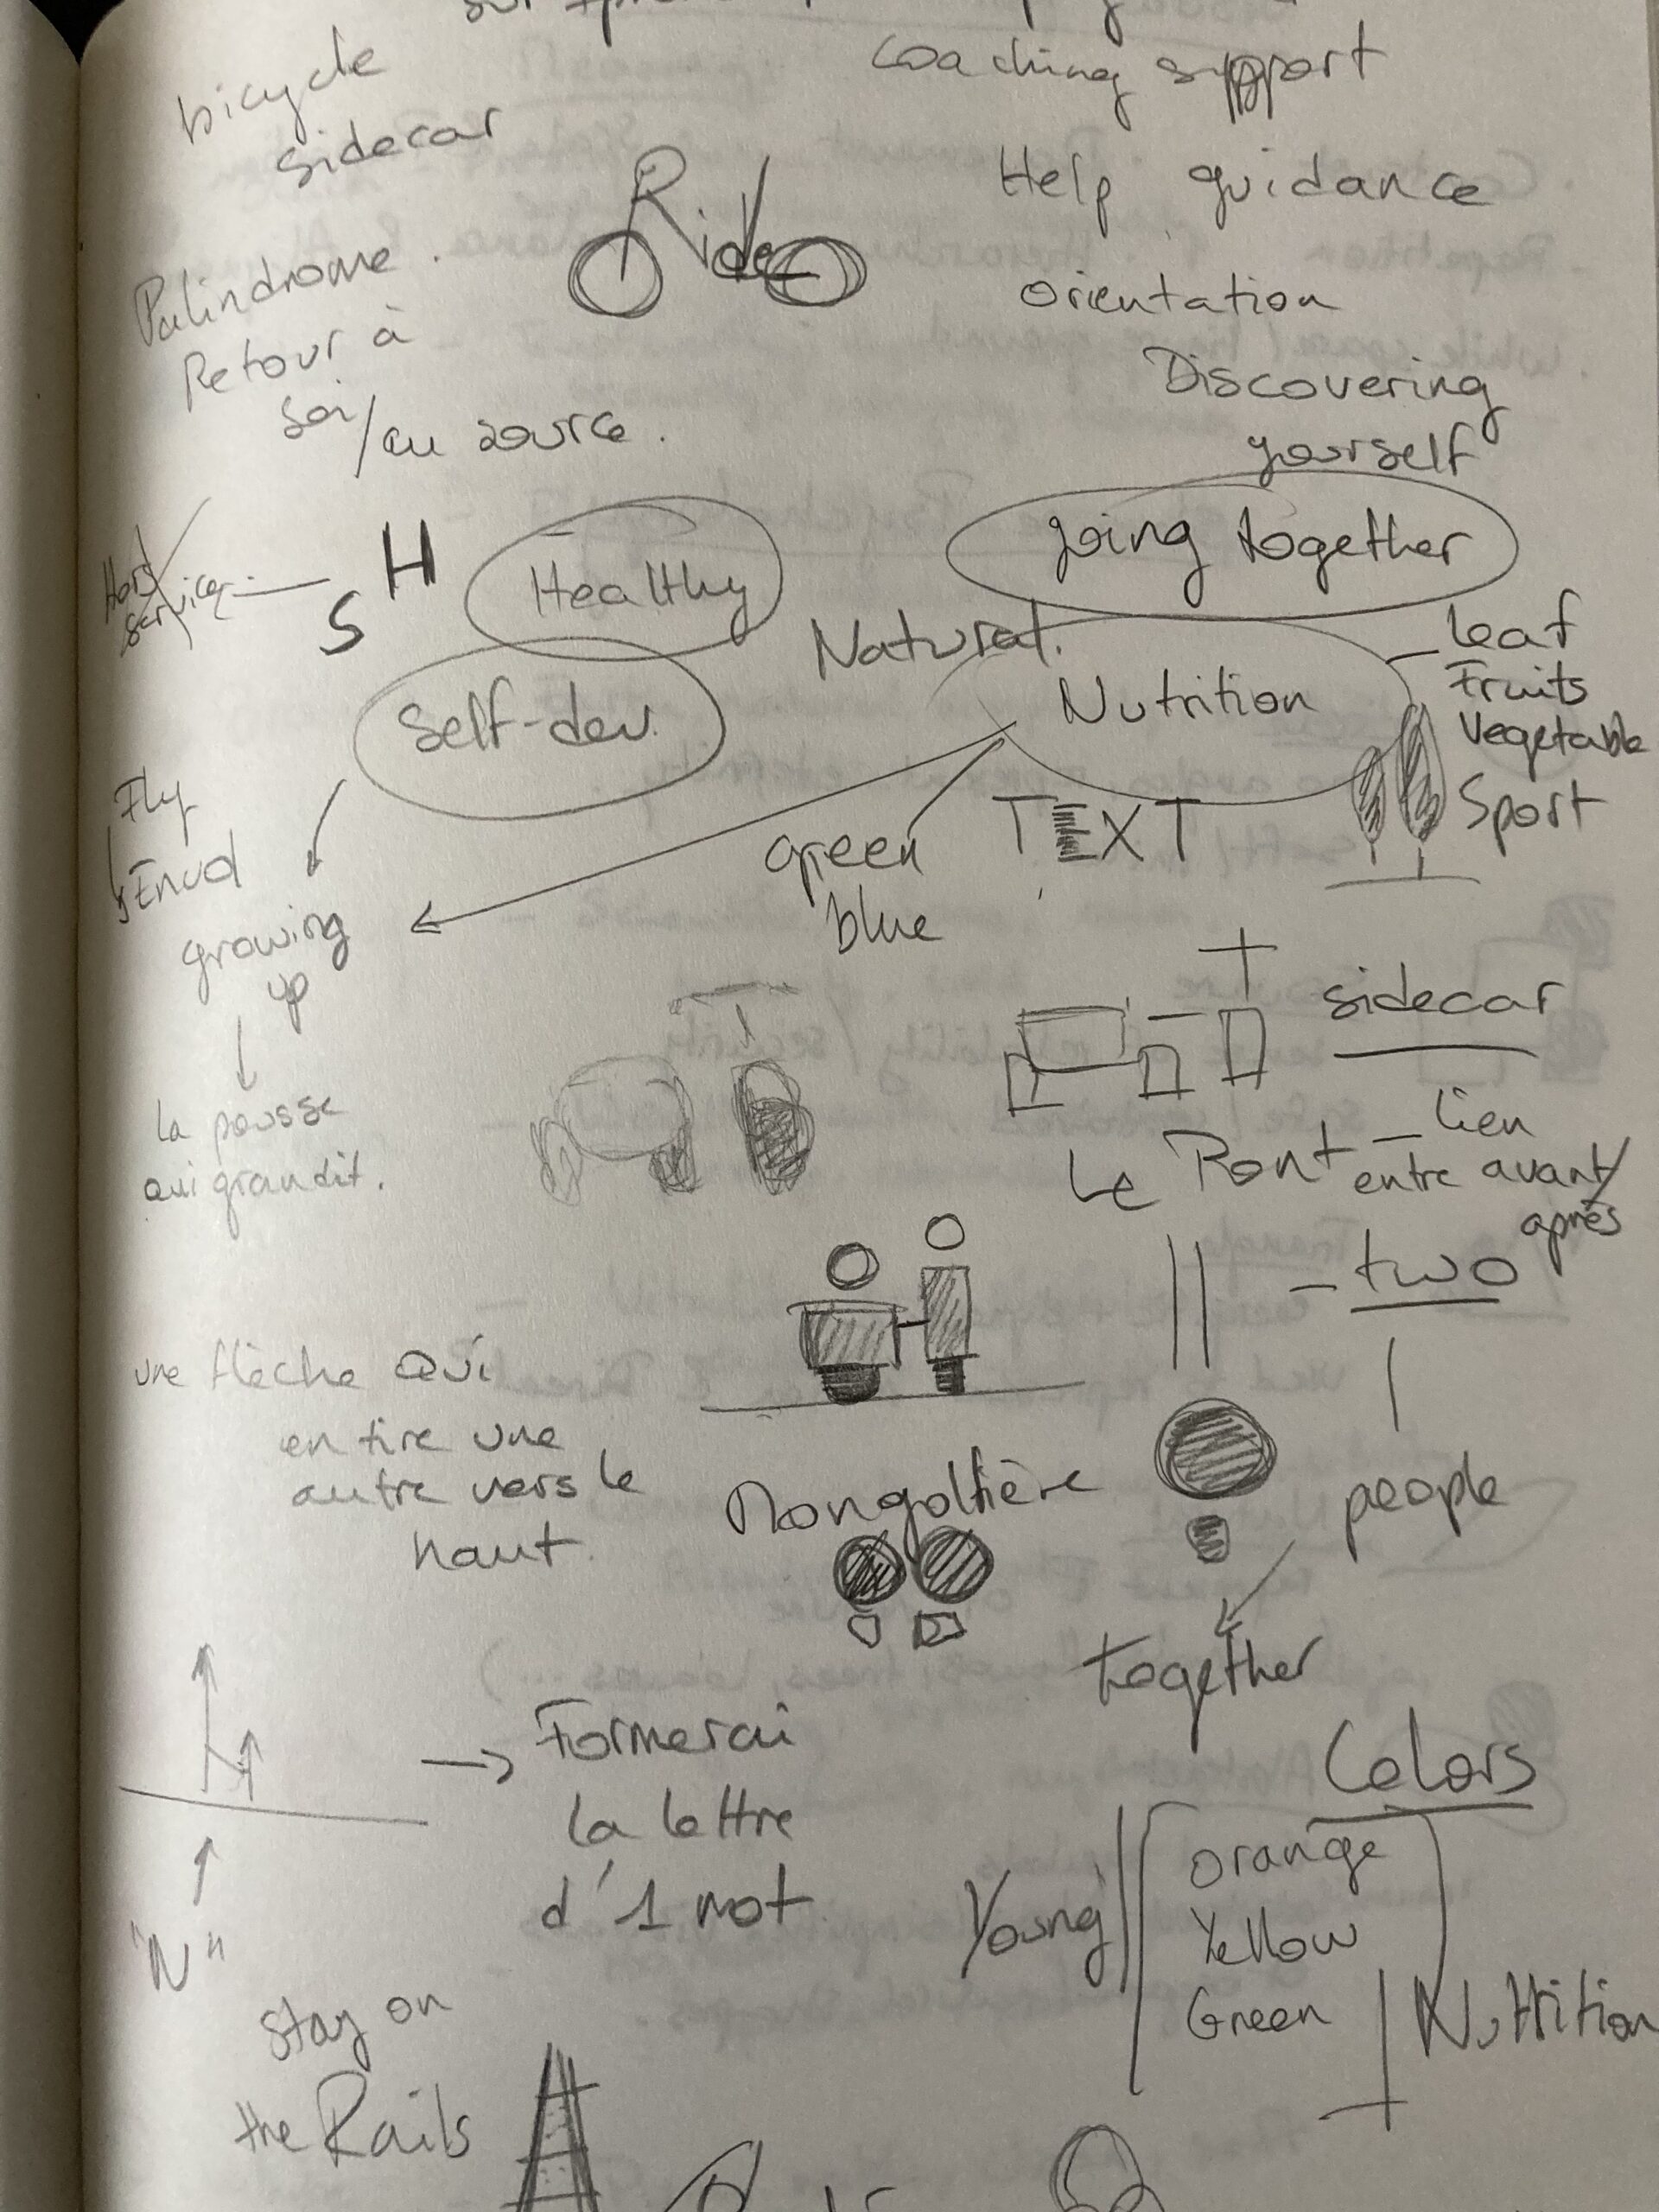 bicycle
sidecar
coaching support
Ride
Help guidance
Palindrome.
Retour à
soi/au source.
orientation
Discovering
yourself
Hors
service
S H
Healthy
going together
Natural.
Self-dev.
Nutrition
Leaf
Fruits
Vegetable
Sport
Fly
green
blue
TEXT
growing
up
la pousse
qui grandit.
sidecar
Le Pont - lien
entre avant/
après
- two
people
together
une flèche Qui
en tire une
autre vers le
haut.
Mongolfière
→ Formerai
la lettre
d'1 mot
"N"
Colors
Young
orange
Yellow
Green
Nuttrition
stay on
the Rails